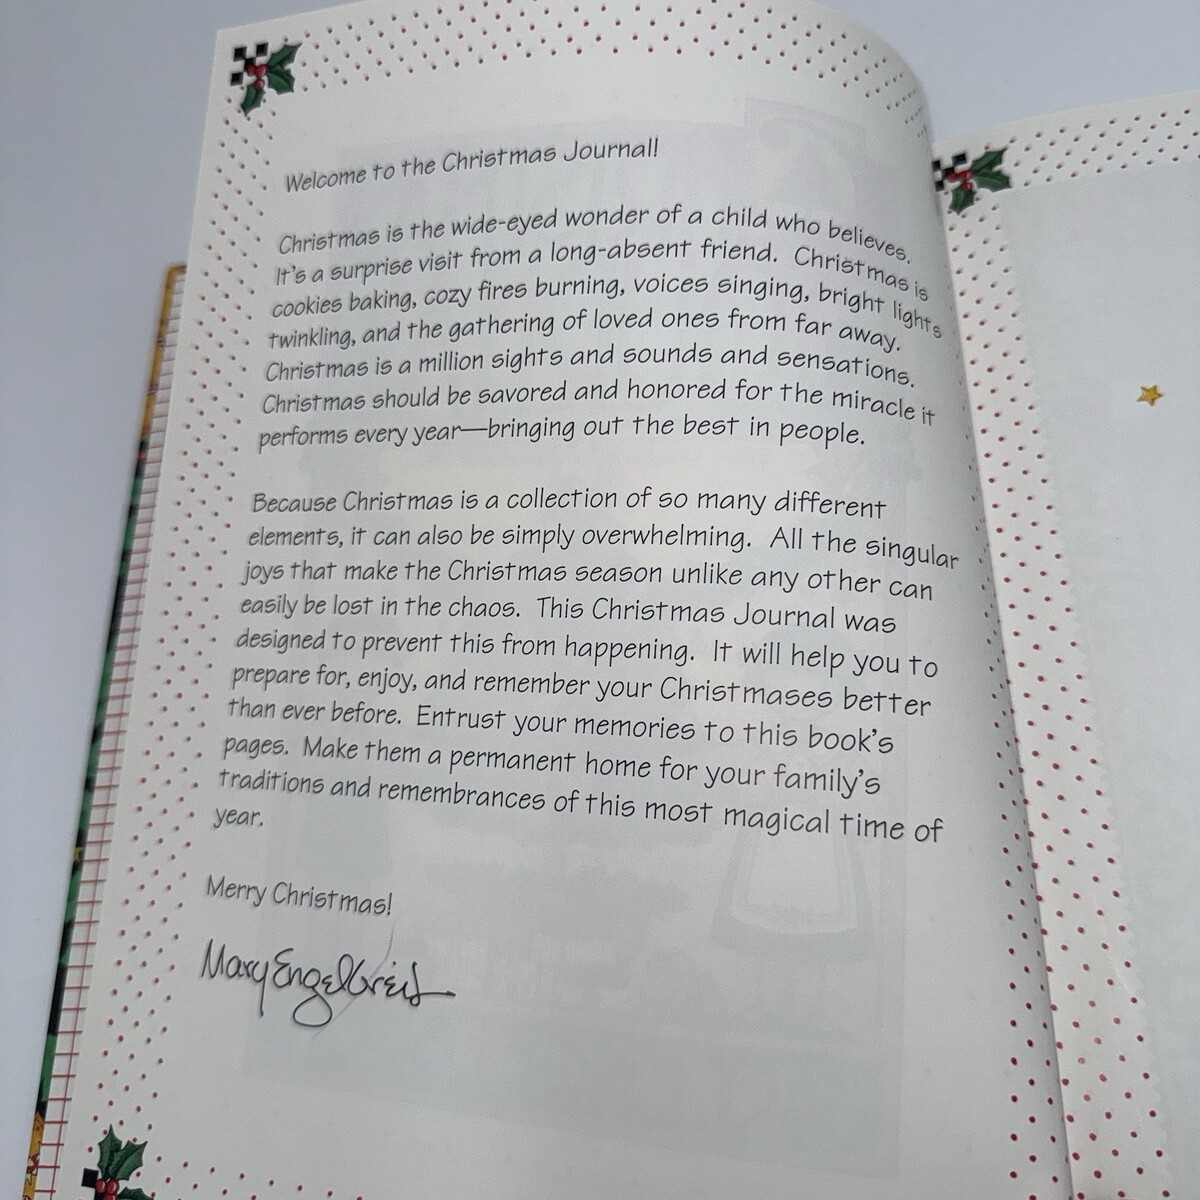 Welcome to the Christmas Journal!
Christmas is the wide-eyed wonder of a child who believes.
It's a surprise visit from a long-absent friend. Christmas is
cookies baking, cozy fires burning, voices singing, bright lights
twinkling, and the gathering of loved ones from far away.
Christmas is a million sights and sounds and sensations.
Christmas should be savored and honored for the miracle it
performs every year—bringing out the best in people.
Because Christmas is a collection of so many different
elements, it can also be simply overwhelming. All the singular
joys that make the Christmas season unlike any other can
easily be lost in the chaos. This Christmas Journal was
designed to prevent this from happening. It will help you to
prepare for, enjoy, and remember your Christmases better
than ever before. Entrust your memories to this book's
pages. Make them a permanent home for your family's
traditions and remembrances of this most magical time of
year.
Merry Christmas!
Mary Engelbreit